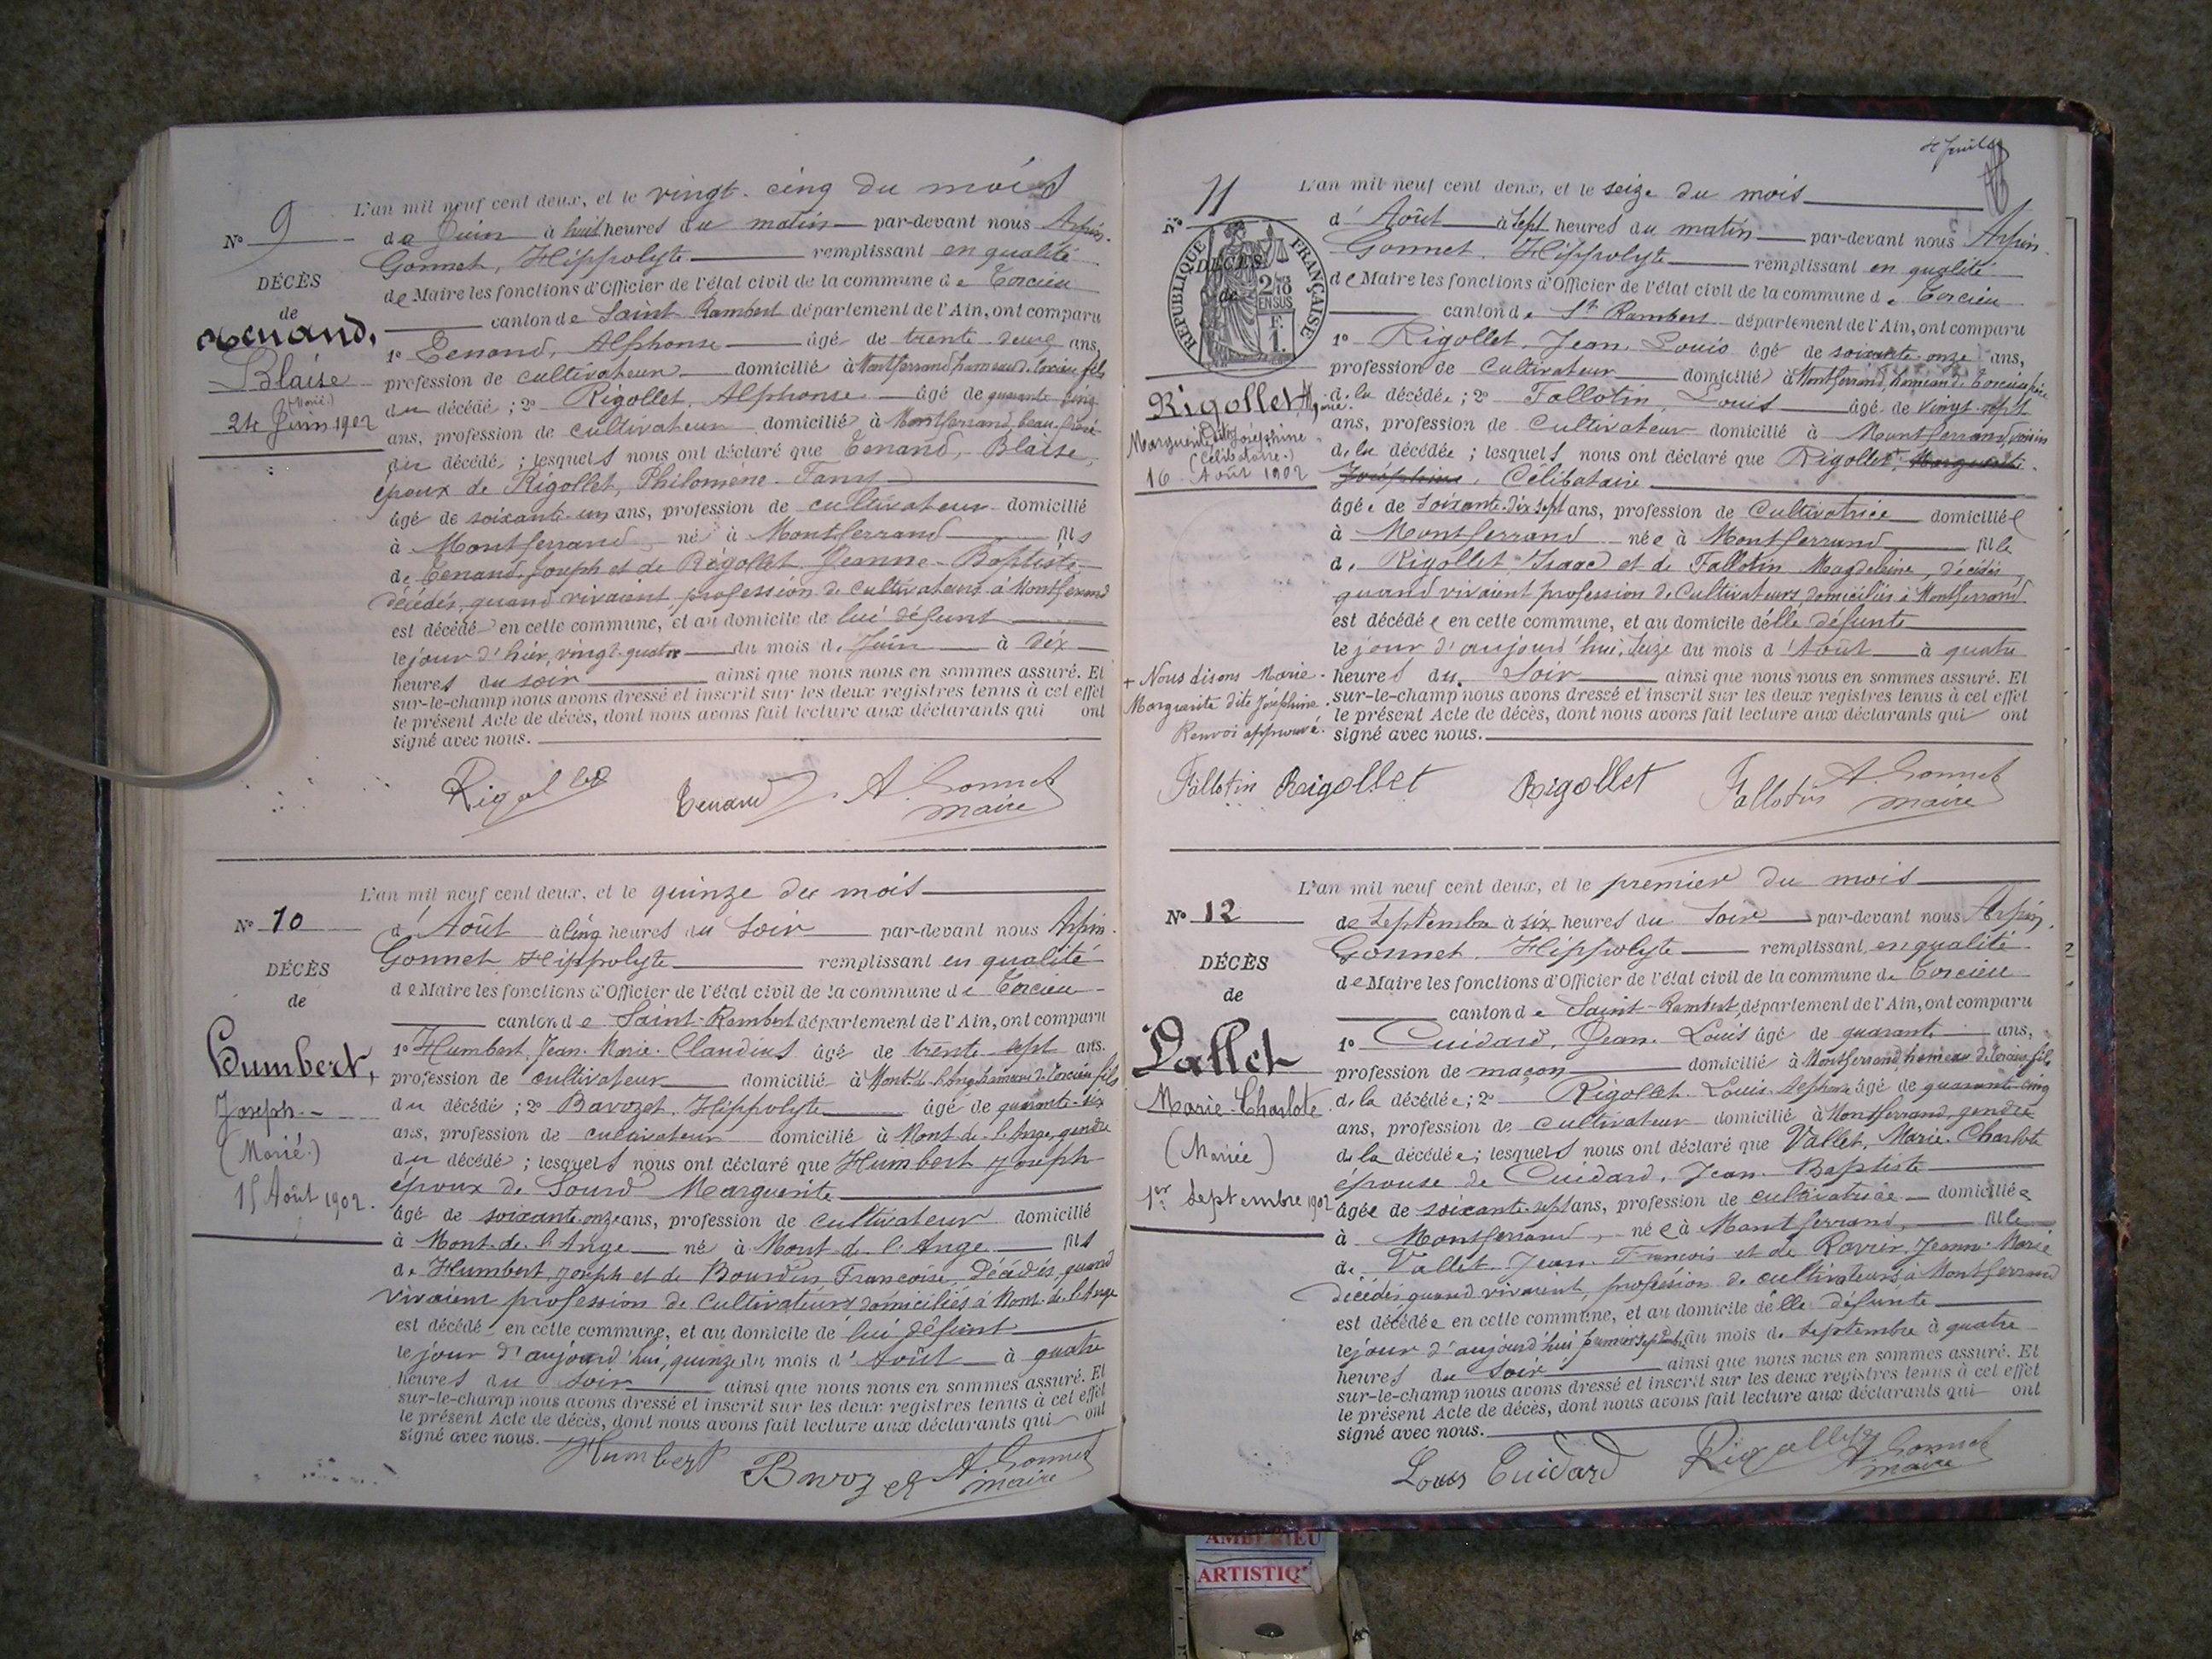 L'an mil neuf cent deux, et le vingt-cinq du mois
No 9
de Juin à huit heures du matin par-devant nous Arpin-
Gonnet, Hippolyte remplissant en qualité
DÉCÈS
de Maire les fonctions d'Officier de l'état civil de la commune de Torcieu
de
canton de Saint Rambert département de l'Ain, ont comparu
Tenand,
1o Tenand, Alphonse âgé de trente-deux ans,
Blaise
profession de cultivateur domicilié à Montferrand hameau de Torcieu fils
(Marié)
du décédé ; 2o Rigollet, Alphonse âgé de quarante cinq
24 Juin 1902
ans, profession de cultivateur domicilié à Montferrand, beau-frère
du décédé ; lesquels nous ont déclaré que Tenand, Blaise,
époux de Rigollet, Philomène-Fany
âgé de soixante-un ans, profession de cultivateur domicilié
à Montferrand né à Montferrand fils
de Tenand, Joseph et de Rigollet Jeanne-Baptiste
décédés, quand vivaient, profession de cultivateurs à Montferrand
est décédé en cette commune, et au domicile de lui défunt
le jour d'hier, vingt-quatre du mois de Juin à dix
heures du soir ainsi que nous nous en sommes assuré. Et
sur-le-champ nous avons dressé et inscrit sur les deux registres tenus à cet effet
le présent Acte de décès, dont nous avons fait lecture aux déclarants qui ont
signé avec nous.
Rigollet Tenand A. Gonnet
maire
L'an mil neuf cent deux, et le quinze du mois
No 10
d'Août à cinq heures du soir par-devant nous Arpin-
Gonnet Hippolyte remplissant en qualité
DÉCÈS
de Maire les fonctions d'Officier de l'état civil de la commune de Torcieu
de
canton de Saint-Rambert département de l'Ain, ont comparu
Humbert,
1o Humbert, Jean-Marie-Claudius âgé de trente-sept ans.
profession de cultivateur domicilié à Mont-de-l'Ange hameau de Torcieu fils
Joseph
du décédé ; 2o Bavozet, Hippolyte âgé de quarante-six
(Marié)
ans, profession de cultivateur domicilié à Mont-de-l'Ange, gendre
du décédé ; lesquels nous ont déclaré que Humbert Joseph
15 Août 1902.
époux de Sourd Marguerite
âgé de soixante-onze ans, profession de cultivateur domicilié
à Mont-de-l'Ange né à Mont-de-l'Ange fils
de Humbert, Joseph et de Bourdin, Françoise, Décédés, quand
vivaient profession de Cultivateurs domiciliés à Mont-de-l'Ange
est décédé en cette commune, et au domicile de lui défunt
le jour d'aujourd'hui, quinze du mois d'Août à quatre
heures du soir ainsi que nous nous en sommes assuré. Et
sur-le-champ nous avons dressé et inscrit sur les deux registres tenus à cet effet
le présent Acte de décès, dont nous avons fait lecture aux déclarants qui ont
signé avec nous.
Humbert Bavozet A. Gonnet
maire
L'an mil neuf cent deux, et le seize du mois
No 11
d'Août à sept heures du matin par-devant nous Arpin-
Gonnet, Hippolyte remplissant en qualité
RÉPUBLIQUE FRANÇAISE
DÉCÈS
2/10 EN SUS
F. 1.
de
de Maire les fonctions d'Officier de l'état civil de la commune de Torcieu
canton de St Rambert département de l'Ain, ont comparu
1o Rigollet, Jean Louis âgé de soixante-onze ans,
profession de Cultivateur domicilié à Montferrand, hameau de Torcieu
Rigollet, Marie-
de la décédée ; 2o Fallotin, Louis âgé de vingt-sept
Marguerite dite Joséphine
ans, profession de Cultivateur domicilié à Montferrand, voisin
(Célibataire.)
de la décédée ; lesquels nous ont déclaré que Rigollet + Marguerite
16 Août 1902
Joséphine, Célibataire
âgée de soixante-dix sept ans, profession de Cultivatrice domiciliée
à Montferrand née à Montferrand fille
de Rigollet Isaac et de Fallotin Magdeleine, décédés,
quand vivaient profession de Cultivateurs domiciliés à Montferrand
est décédée en cette commune, et au domicile d'elle défunte
le jour d'aujourd'hui, seize du mois d'Août à quatre
+ Nous disons Marie-
heures du Soir ainsi que nous nous en sommes assuré. Et
Marguerite dite Joséphine.
sur-le-champ nous avons dressé et inscrit sur les deux registres tenus à cet effet
le présent Acte de décès, dont nous avons fait lecture aux déclarants qui ont
Renvoi approuvé.
signé avec nous.
Fallotin Rigollet Rigollet Fallotin A. Gonnet
maire
L'an mil neuf cent deux, et le premier du mois
No 12
de Septembre à six heures du soir par-devant nous Arpin-
Gonnet, Hippolyte remplissant en qualité
DÉCÈS
de Maire les fonctions d'Officier de l'état civil de la commune de Torcieu
de
canton de Saint-Rambert, département de l'Ain, ont comparu
Vallet
1o Cuidard, Jean-Louis âgé de quarante ans,
profession de maçon domicilié à Montferrand, hameau de Torcieu, fils
Marie-Charlote
de la décédée ; 2o Rigollet, Louis-Alphonse âgé de quarante cinq
ans, profession de cultivateur domicilié à Montferrand, gendre
(Mariée)
de la décédée ; lesquels nous ont déclaré que Vallet, Marie-Charlote
épouse de Cuidard, Jean-Baptiste
1er Septembre 1902
âgée de soixante-sept ans, profession de cultivatrice domiciliée
à Montferrand, née à Montferrand, fille
de Vallet Jean-François et de Ravier, Jeanne-Marie
décédés quand vivaient, profession de cultivateurs à Montferrand
est décédée en cette commune, et au domicile d'elle défunte
le jour d'aujourd'hui premier septembre du mois de Septembre à quatre
heures du Soir ainsi que nous nous en sommes assuré. Et
sur-le-champ nous avons dressé et inscrit sur les deux registres tenus à cet effet
le présent Acte de décès, dont nous avons fait lecture aux déclarants qui ont
signé avec nous.
Louis Cuidard Rigollet A. Gonnet
maire
AMBÉRIEU
ARTISTIQ